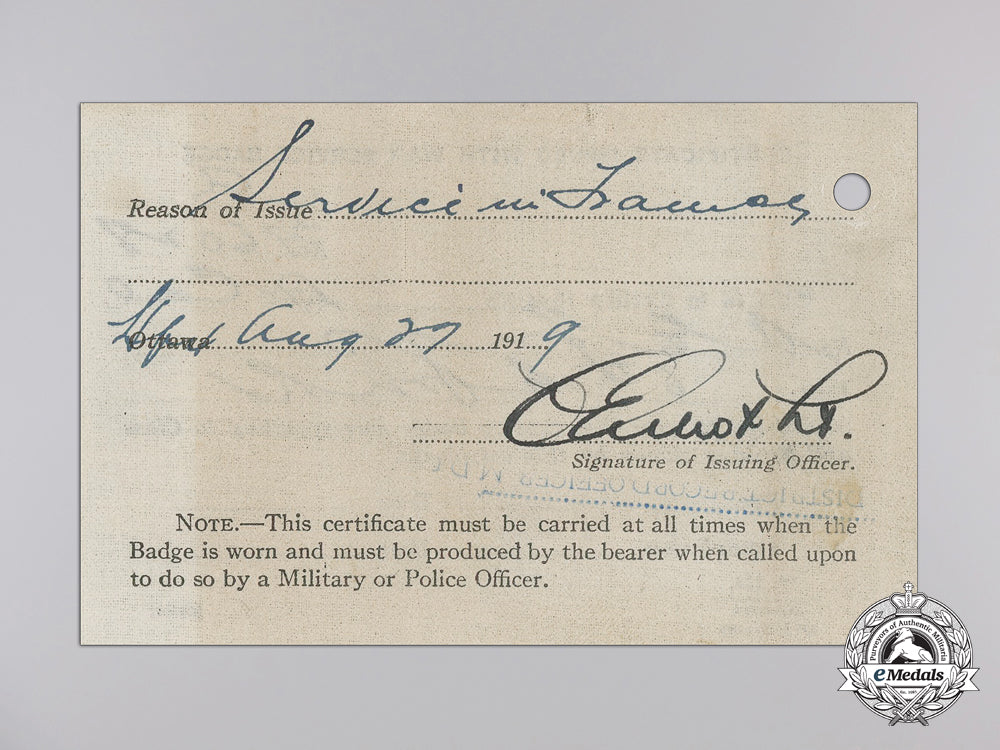 Reason of Issue Service in France
Ottawa Hfx Aug 27 1919
Lt.
Signature of Issuing Officer.
DISTRICT RECORD OFFICES M.D.
NOTE.—This certificate must be carried at all times when the
Badge is worn and must be produced by the bearer when called upon
to do so by a Military or Police Officer.
Purveyors of Authentic Militaria
eMedals